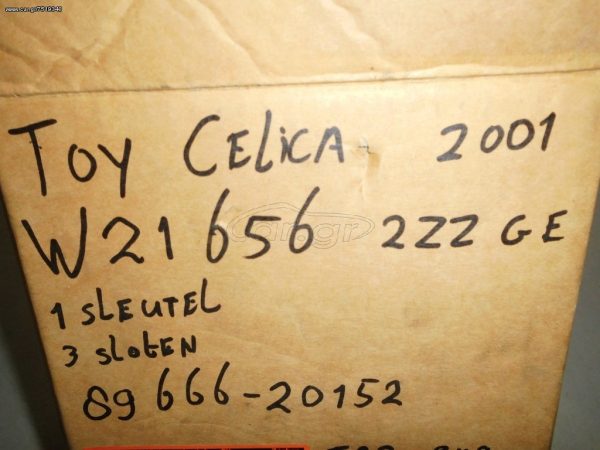 www.car.gr/7519340
Toy CELiCA 2001
W21656 2ZZ GE
car.gr
1 SLEUTEL
3 SLOTEN
89666-20152